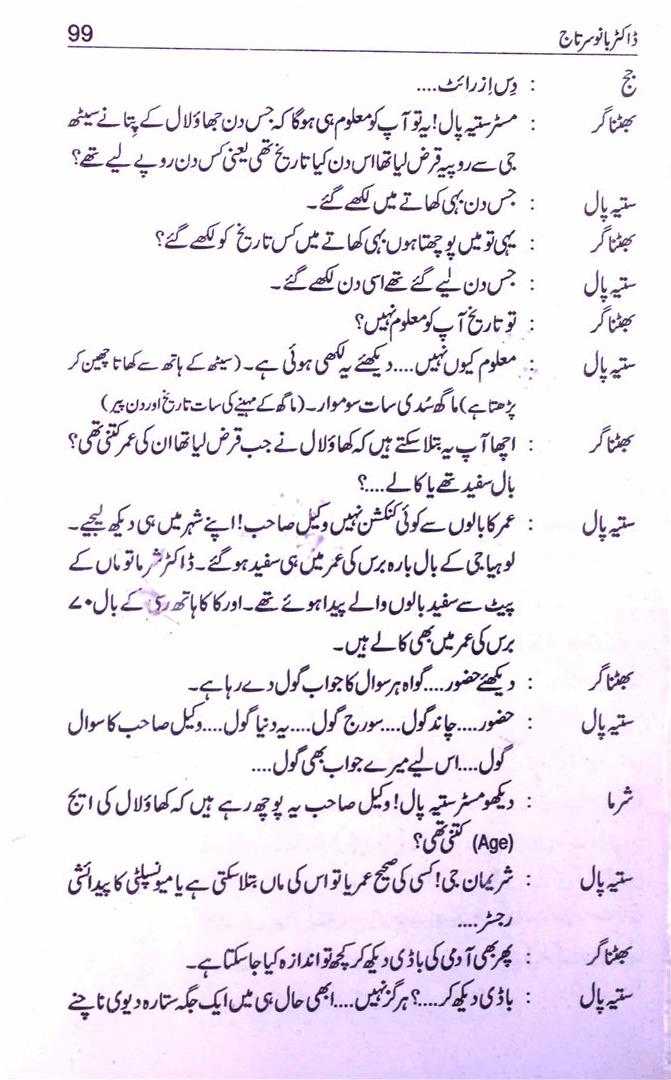 ڈاکٹر بانو سرتاج 99
جج : دِس اِز رائٹ....
بھٹناگر : مسٹر ستیہ پال! یہ تو آپ کو معلوم ہی ہوگا کہ جس دن جھاؤلال کے پِتا نے سیٹھ
جی سے روپیہ قرض لیا تھا اس دن کیا تاریخ تھی یعنی کس دن روپے لیے تھے؟
ستیہ پال : جس دن بہی کھاتے میں لکھے گئے۔
بھٹناگر : یہی تو میں پوچھتا ہوں بہی کھاتے میں کس تاریخ کو لکھے گئے؟
ستیہ پال : جس دن لیے گئے تھے اسی دن لکھے گئے۔
بھٹناگر : تو تاریخ آپ کو معلوم نہیں؟
ستیہ پال : معلوم کیوں نہیں.... دیکھئے یہ لکھی ہوئی ہے۔ (سیٹھ کے ہاتھ سے کھاتا چھین کر
پڑھتا ہے) ماگھ سُدی سات سوموار۔ (ماگھ کے مہینے کی سات تاریخ اور دن پیر)
بھٹناگر : اچھا آپ یہ بتلا سکتے ہیں کہ کھاؤلال نے جب قرض لیا تھا ان کی عمر کتنی تھی؟
بال سفید تھے یا کالے....؟
ستیہ پال : عمر کا بالوں سے کوئی کنکشن نہیں وکیل صاحب! اپنے شہر میں ہی دیکھ لیجیے۔
لوہیا جی کے بال بارہ برس کی عمر میں ہی سفید ہو گئے۔ ڈاکٹر شرما تو ماں کے
پیٹ سے سفید بالوں والے پیدا ہوئے تھے۔ اور کاکا ہاتھرسی کے بال ۷۰
برس کی عمر میں بھی کالے ہیں۔
بھٹناگر : دیکھئے حضور.... گواہ ہر سوال کا جواب گول دے رہا ہے۔
ستیہ پال : حضور.... چاند گول.... سورج گول.... یہ دنیا گول.... وکیل صاحب کا سوال
گول.... اس لیے میرے جواب بھی گول....
شرما : دیکھو مسٹر ستیہ پال! وکیل صاحب یہ پوچھ رہے ہیں کہ کھاؤلال کی ایج
(Age) کتنی تھی؟
ستیہ پال : شریمان جی! کسی کی صحیح عمر یا تو اس کی ماں بتلا سکتی ہے یا میونسپلٹی کا پیدائشی
رجسٹر....
بھٹناگر : پھر بھی آدمی کی باڈی دیکھ کر کچھ تو اندازہ کیا جا سکتا ہے۔
ستیہ پال : باڈی دیکھ کر....؟ ہرگز نہیں.... ابھی حال ہی میں ایک جگہ ستارہ دیوی ناچنے